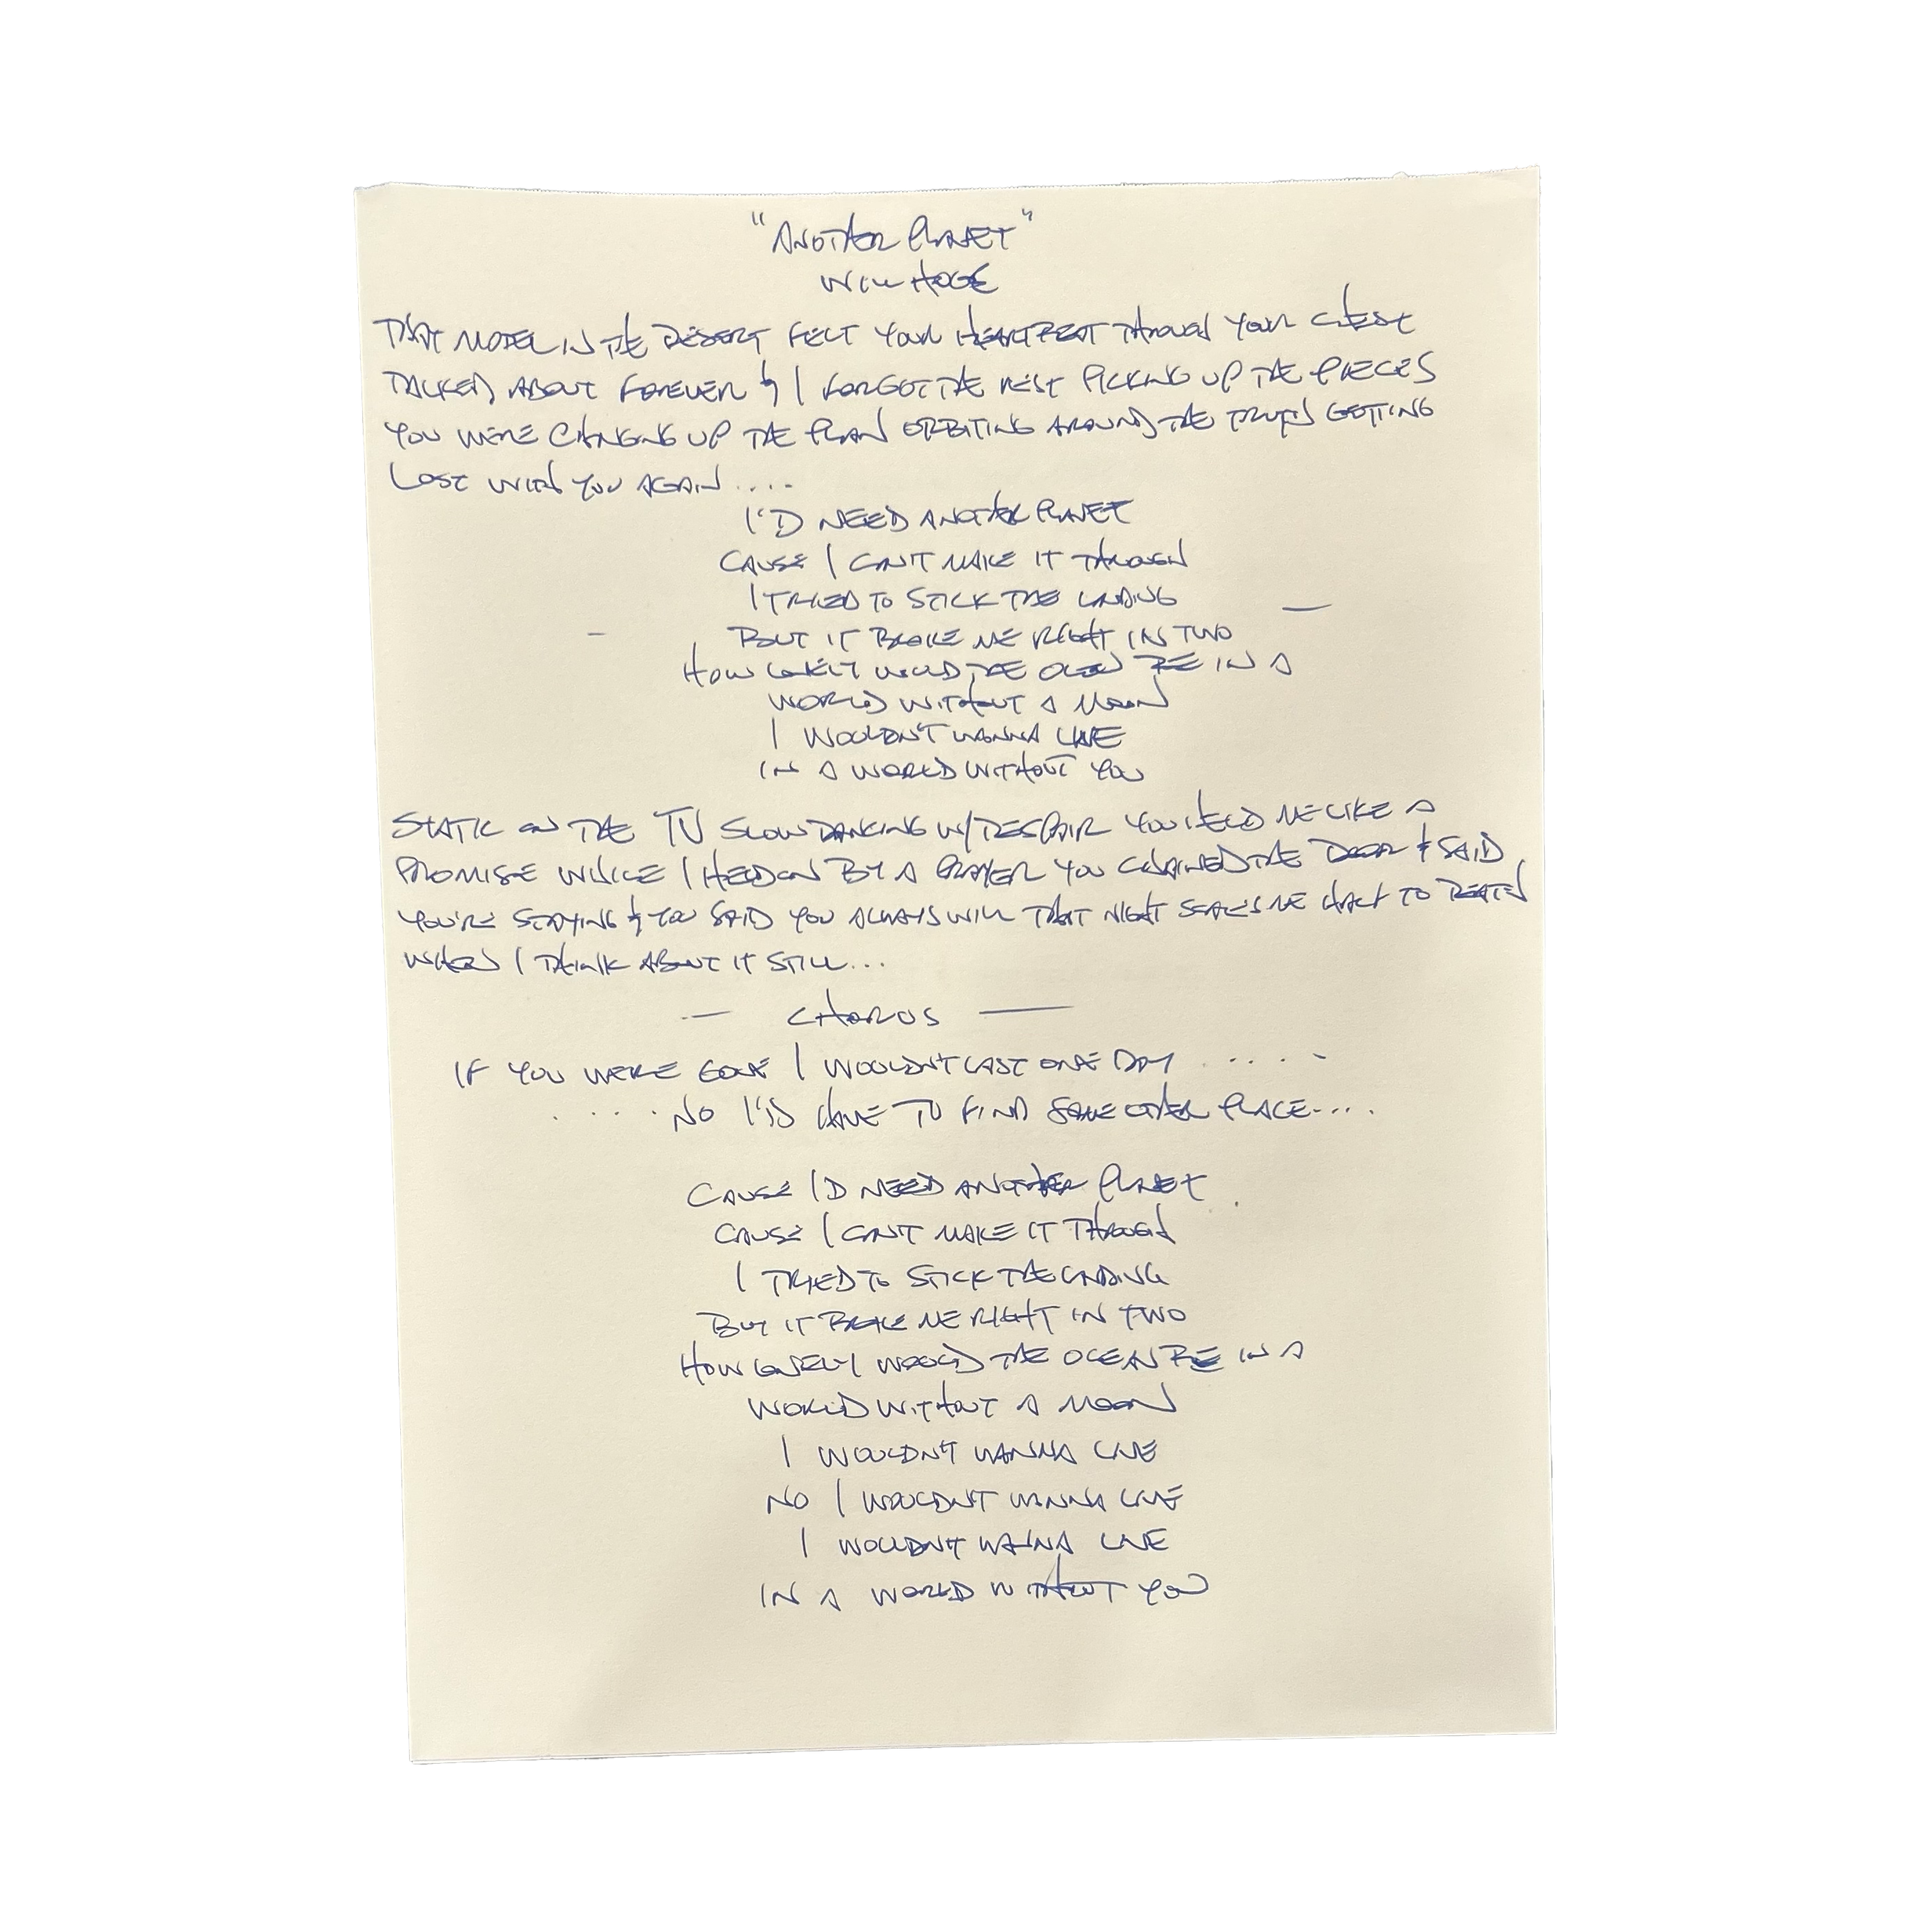 "ANOTHER PLANET"
WILL HOGE
THAT MOTEL IN THE DESERT FELT YOUR HEARTBEAT THROUGH YOUR CHEST
TALKED ABOUT FOREVER & I FORGOT THE REST PICKING UP THE PIECES
YOU WERE CHANGING UP THE PLAN ORBITING AROUND THE TRUTH GETTING
LOST WITH YOU AGAIN....
I'D NEED ANOTHER PLANET
CAUSE I CAN'T MAKE IT THROUGH
I TRIED TO STICK THE LANDING
BUT IT BROKE ME RIGHT IN TWO
HOW LONELY WOULD THE OCEAN BE IN A
WORLD WITHOUT A MOON
I WOULDN'T WANNA LIVE
IN A WORLD WITHOUT YOU
STATIC ON THE TV SLOW DANCING W/ DESPAIR YOU HELD ME LIKE A
PROMISE WHILE I HELD ON BY A PRAYER YOU CHAINED THE DOOR & SAID
YOU'RE STAYING & YOU SAID YOU ALWAYS WILL THAT NIGHT SCARES ME HALF TO DEATH
WHEN I THINK ABOUT IT STILL...
— CHORUS —
IF YOU WERE GONE I WOULDN'T LAST ONE DAY .....
.... NO I'D HAVE TO FIND SOME OTHER PLACE....
CAUSE I'D NEED ANOTHER PLANET
CAUSE I CAN'T MAKE IT THROUGH
I TRIED TO STICK THE LANDING
BUT IT BROKE ME RIGHT IN TWO
HOW LONELY WOULD THE OCEAN BE IN A
WORLD WITHOUT A MOON
I WOULDN'T WANNA LIVE
NO I WOULDN'T WANNA LIVE
I WOULDN'T WANNA LIVE
IN A WORLD WITHOUT YOU